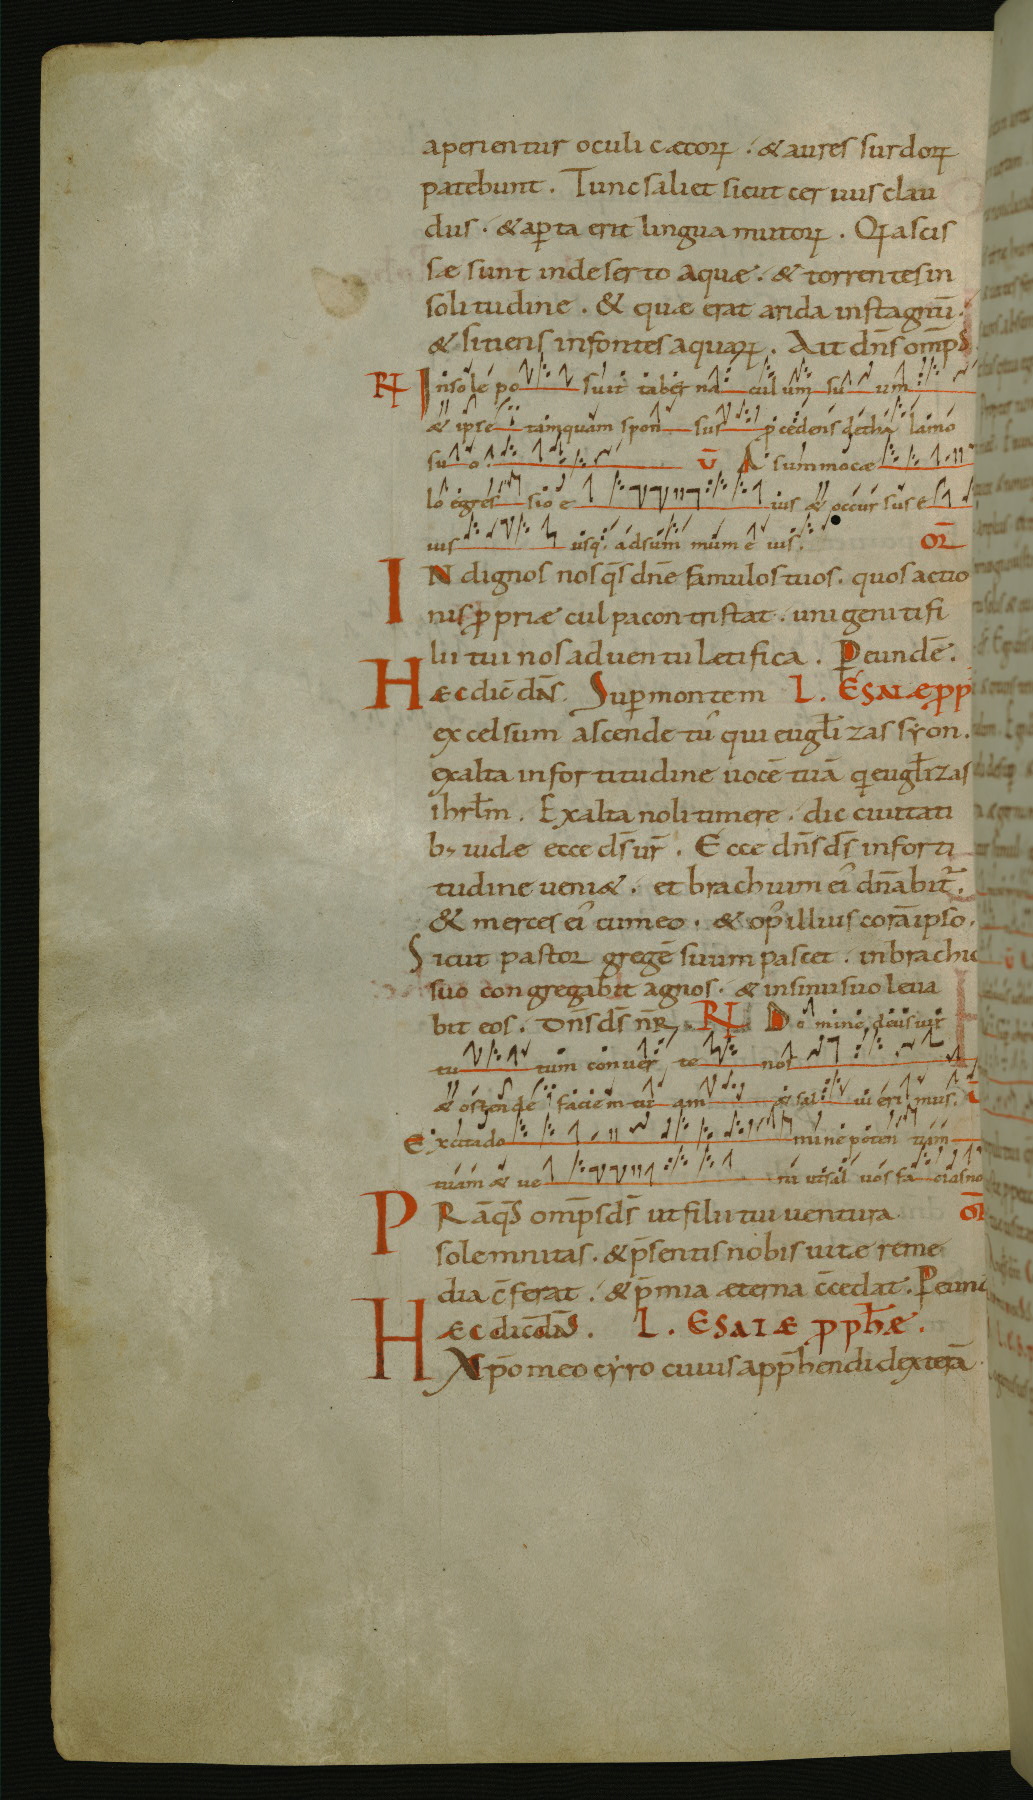 aperientur oculi cæcorꝝ . & aures surdorꝝ
patebunt . Tunc saliet sicut ceruus clau
dus . & aꝑta erit lingua mutorꝝ . Qꝛa scis
sæ sunt in deserto aquæ . & torrentes in
solitudine . & quæ erat arida in stagnū .
& sitiens in fontes aquarꝝ . Ait dn̄s om̄ps
R̸ In sole posuit tabernaculum suum
& ipse tamquam sponsus ꝓcedens de thalamo
suo . v̄ A summo cæ
lo egressio eius & occursus e
ius usq; ad summum eius . OR̄
Indignos nos q̄s dn̄e famulos tuos . quos actio
nis ꝓpriæ culpa contristat . unigeniti fi
lii tui nos aduentu letifica . Ꝑ eundē .
Hæc dic̄ dn̄s . Suꝑ montem L . Esaiæ ꝓp
excelsum ascende tu qui eugl̄izas syon .
exalta in fortitudine uocē tuā q̄ eugl̄izas
ihrl̄m . Exalta noli timere . dic ciuitati
b; iudæ ecce ds̄ ur̄ . Ecce dn̄s ds̄ in forti
tudine ueni& . et brachium ei' dn̄abit᷑ .
& merces ei' cum eo . & op' illius corā ipso .
Sicut pastor gregē suum pascet . in brachio
suo congregabit agnos . & in sinu suo leua
bit eos . Dn̄s ds̄ nr̄ . R̸ Domine deus uir
tutum conuerte nos
& ostende faciem tuam & salui erimus . v̄
Excita domine potentiam
tuam & ueni ut saluos facias no
PRæ q̄s om̄ps ds̄ ut filii tui uentura OR̄
solemnitas . & p̄sentis nobis uitæ reme
dia c̄ferat . & p̄mia æterna c̄cedat . Ꝑ eund
Hæc dic̄ dn̄s . L . Esaiæ ꝓph̄æ .
Xp̄o meo cyro cuius app̄hendi dexterā .